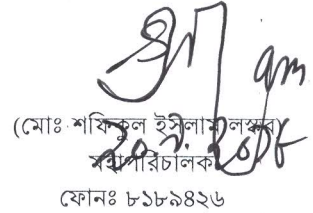 (মোঃ শফিকুল ইসলাম লস্কর)
মহাপরিচালক
ফোনঃ ৮১৮৯৪২৬